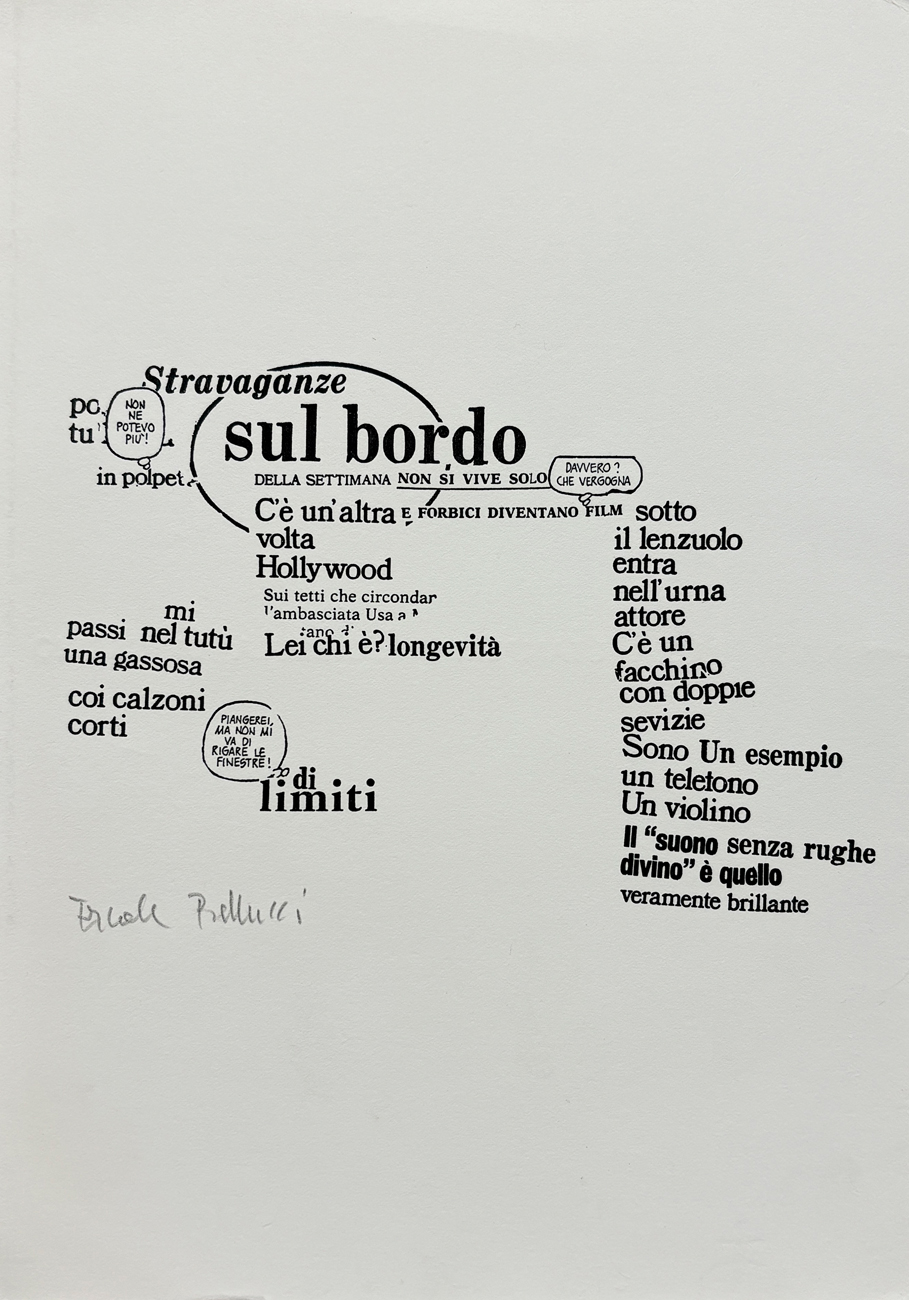 Stravaganze
sul bordo
po
tu
NON
NE
POTEVO
PIU'!
in polpet
DELLA SETTIMANA NON SI VIVE SOLO
DAVVERO?
CHE VERGOGNA
C'è un'altra E FORBICI DIVENTANO FILM sotto
volta
Hollywood
Sui tetti che circondar
l'ambasciata Usa a
Lei chi è? longevità
mi
passi nel tutù
una gassosa
coi calzoni
corti
PIANGEREI,
MA NON MI
VA DI
RIGARE LE
FINESTRE!
di
limiti
il lenzuolo
entra
nell'urna
attore
C'è un
facchino
con doppie
sevizie
Sono Un esempio
un telefono
Un violino
Il “suono senza rughe
divino” è quello
veramente brillante